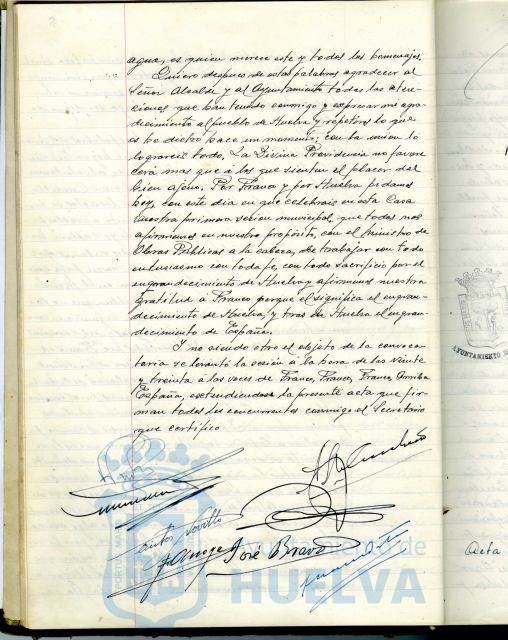 agua, es quien merece este y todos los homenajes.
Quiero despues de estas palabras agradecer al
Señor Alcalde y al Ayuntamiento todas las aten-
ciones que han tenido conmigo y expresar mi agra-
decimiento al pueblo de Huelva y repetiros lo que
os he dicho hace un momento; con la union lo
lograreis todo, La Divina Providencia no favore
cerá mas que á los que sientan el placer del
bien ajeno. Por Franco y por Huelva pidamos
hoy, con este dia en que celebrais en esta Casa
vuestra primera sesion municipal, que todos nos
afirmemos en nuestro propósito, con el Ministro de
Obras Públicas a la cabeza, de trabajar con todo
entusiasmo con toda fe, con todo sacrificio por el
engrandecimiento de Huelva y afirmemos nuestra
gratitud a Franco porque el significa el engran-
decimiento de Huelva, y tras de Huelva el engran-
decimiento de España.
Y no siendo otro el objeto de la convoca-
toria se levantó la sesión á la hora de las veinte
y treinta a las voces de Franco, Franco, Franco, Arriba
España, extendiendose la presente acta que fir-
man todos los concurrentes conmigo el Secretario
que certifico
José Bravo
Ayuntamiento de
HUELVA
AYUNTAMIENTO DE
Acta